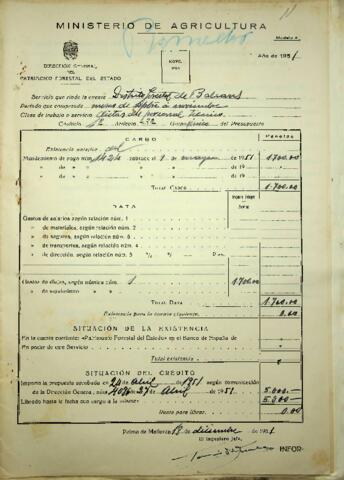 11
MINISTERIO DE AGRICULTURA
Modelo
DIRECCIÓN GENERAL
DEL
PATRIMONIO FORESTAL DEL ESTADO
Año de 1951
Servicio que rinde la cuenta Distrito Forestal de Baleares
Período que comprende meses de Spbre a noviembre
Clase de trabajo o servicio dietas del personal técnico
Capítulo 1º Artículo 2º del Presupuesto
CARGO
Pesetas
Existencia anterior
Mandamiento de pago núm. cobrado 1 de 1951 1.700.00
» » » de 19
» » » de 19
TOTAL CARGO 1.700.00
DATA
Gastos de salarios según relación núm. 1
» de materiales, según relación núm. 2
» de seguros, según relación núm. 3
» de transportes, según relación núm. 4
» de dirección, según relación núm. 5
Gastos de dietas, según nómina núm. 1 1.700.00
TOTAL DATA 1.700.00
Existencia para la cuenta siguiente 0.00
SITUACIÓN DE LA EXISTENCIA
En la cuenta corriente «Patrimonio Forestal del Estado» en el Banco de España de
En poder de este Servicio
Total existencia
SITUACIÓN DEL CRÉDITO
Importa la propuesta aprobada en 24 de Abril de 1951 según comunicación
de la Dirección General, núm. 4076 27 de Abril de 1951 5.000.—
Librado hasta la fecha con cargo a la misma 5.000—
Resta para librar 0.00
Palma de Mallorca 18 de diciembre de 1951
El Ingeniero Jefe,
INFOR-